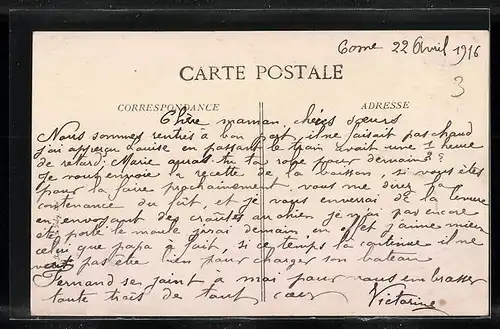 Come 22 Avril 1916
3
CARTE POSTALE
CORRESPONDANCE
ADRESSE
Chère maman, chères sœurs
Nous sommes rentrés à bon port, il ne faisait pas chaud
j'ai apperçu Louise en passant le train avait une 1 heure
de retard; Marie auras tu ta robe pour demain??
Je vous envoie la recette de la boisson, si vous êtes
pour la faire prochainement vous me direz la
contenance du fût, et je vous enverrai de la levure
en envoyant des croûtes au chien je n'ai pas encore
été porté le moule j'irai demain, en effet j'aime mieux
celui que papa a fait, si ce temps là continue il ne
pas être bien pour charger son bateau
Fernand se joint à moi pour vous embrasser
toute très de tout cœur
Victorine